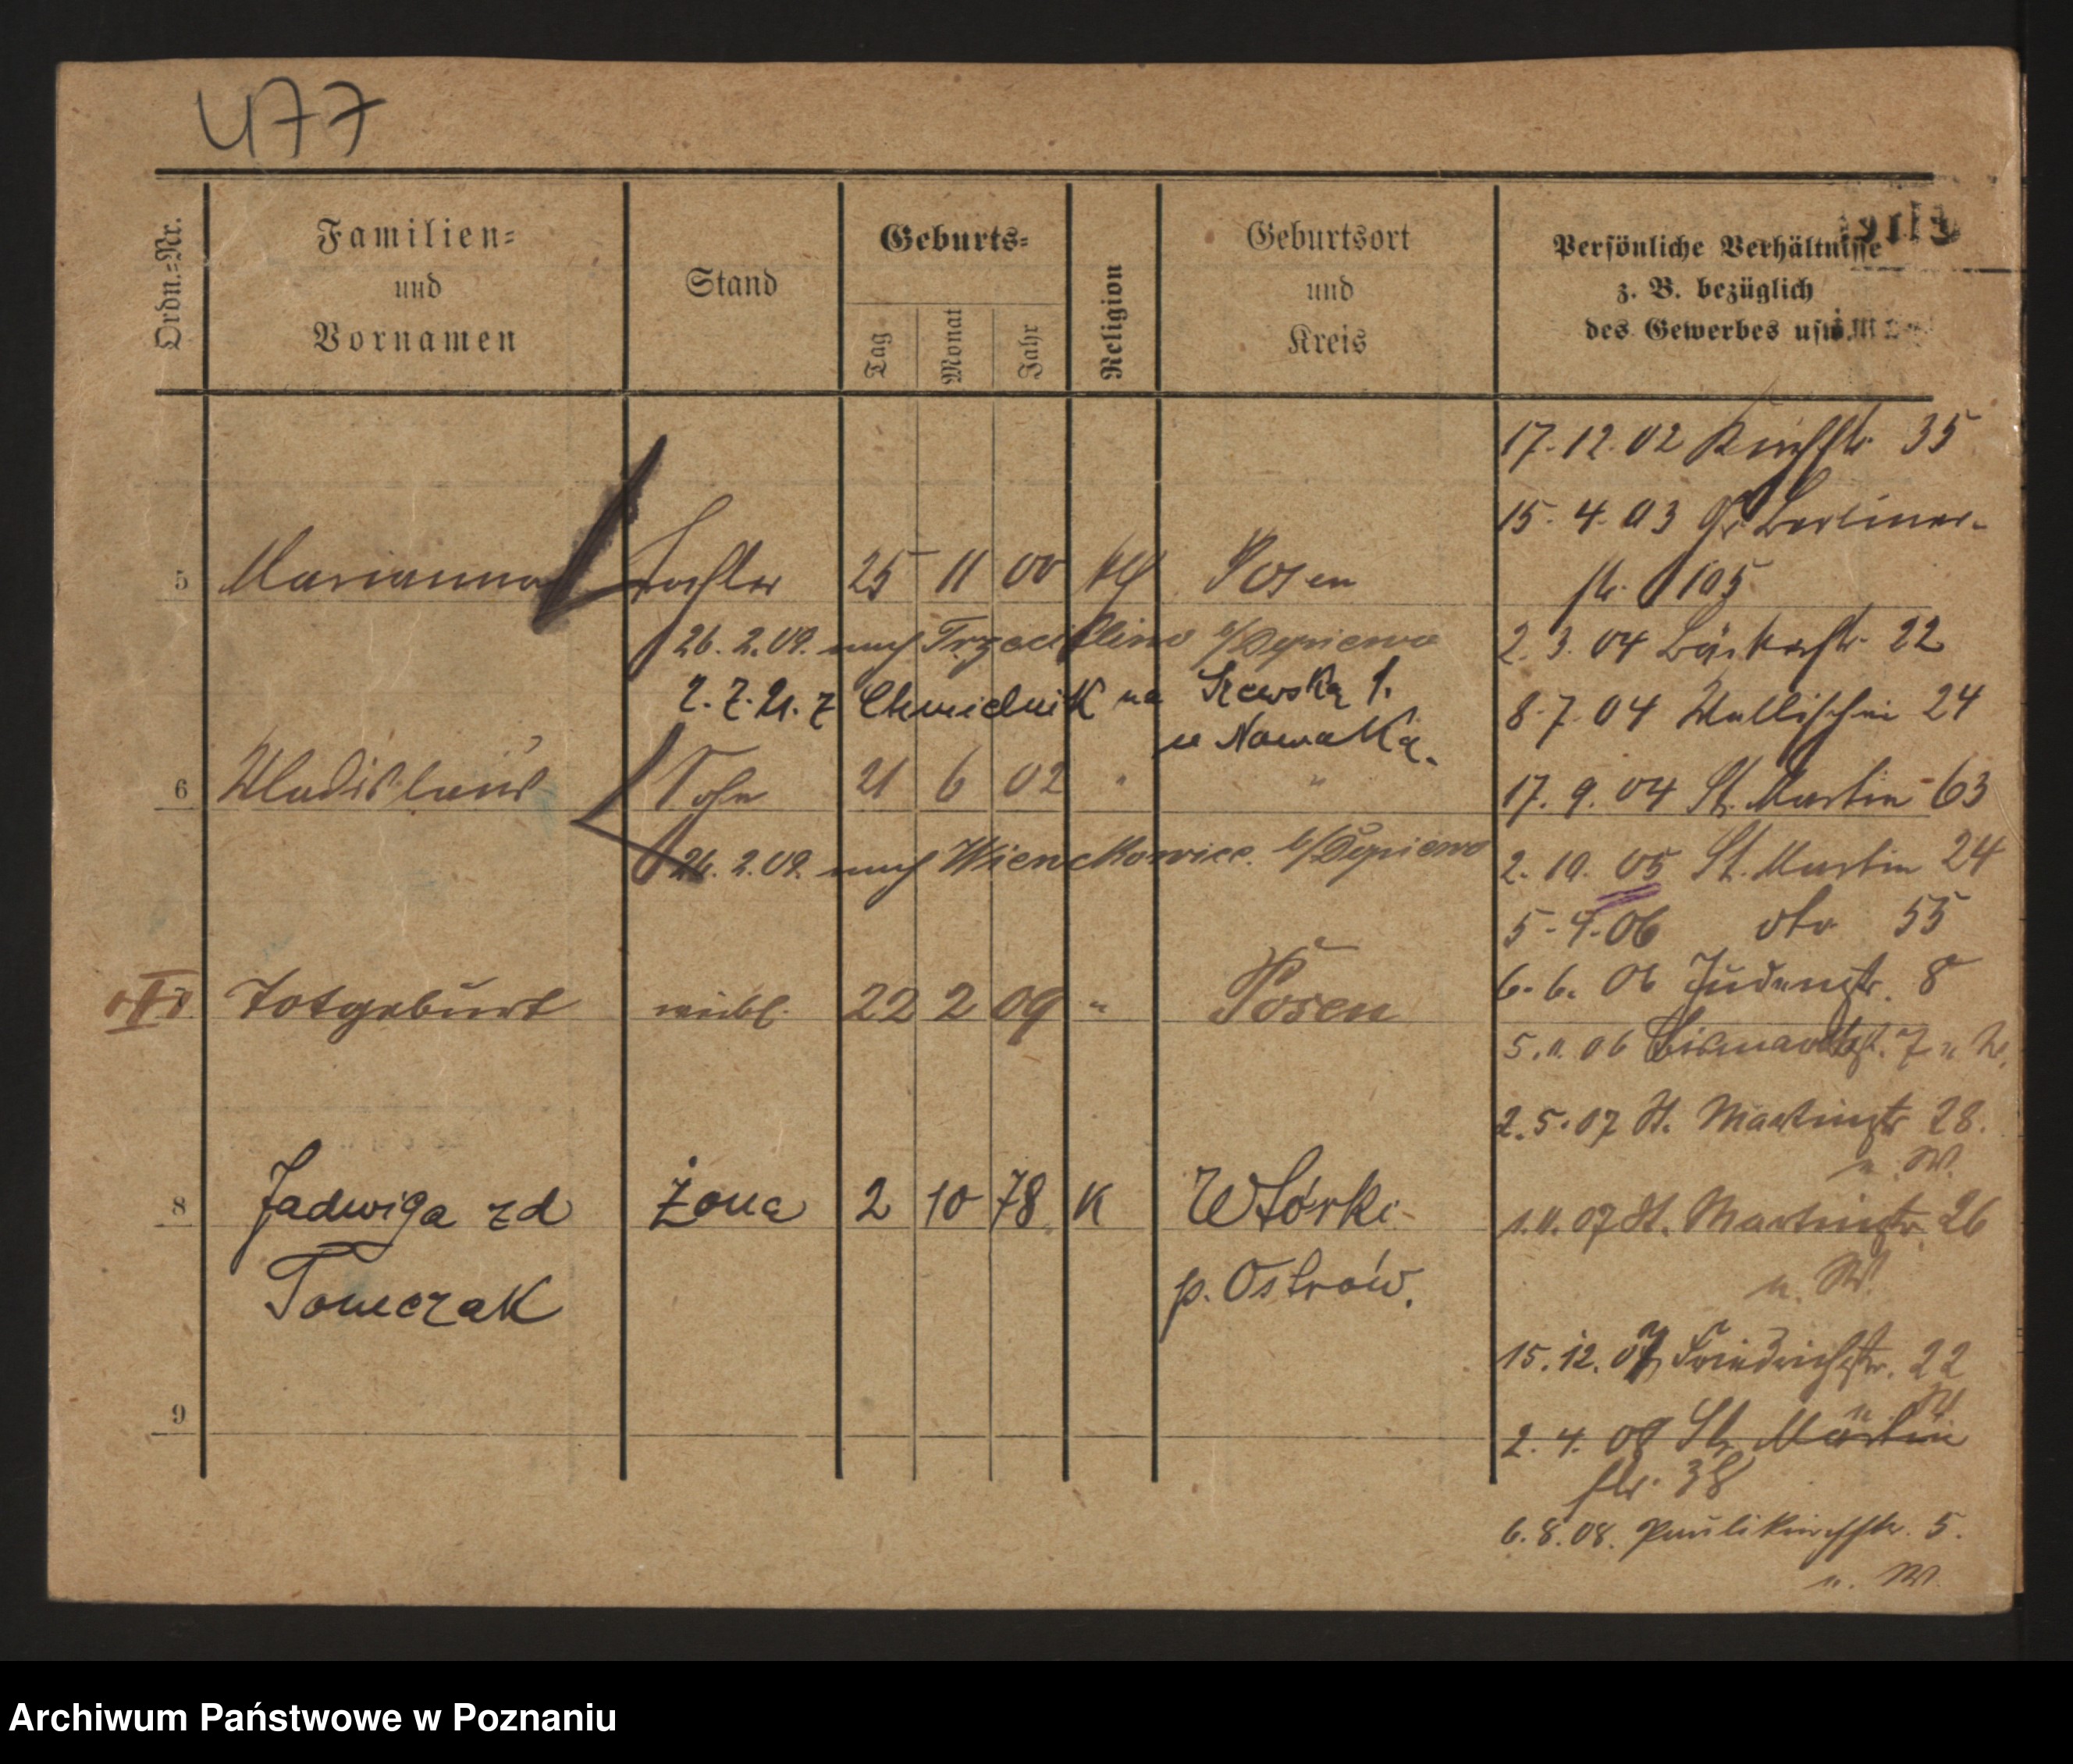 477
Ordn.-Nr.
Familien-
und
Vornamen
Stand
Geburts-
Tag
Monat
Jahr
Religion
Geburtsort
und
Kreis
Persönliche Verhältnisse
z. B. bezüglich
des Gewerbes usw.
5 Marianna Tochter 25 11 00 kth Posen
26. 2. 09. nach
2. 7. 21. z Chmielnik na Szewską 1.
u Nowaka.
6 Wladislaus Sohn 21 6 02 " "
26. 2. 09. nach
Totgeburt weibl. 22 2 09 " Posen
8 Jadwiga zd żona 2 10 78 K Wtórki
Tomczak p. Ostrów.
9
17. 12. 02 Kirchstr. 35
15. 4. 03 Gr. Berliner-
str. 105
2. 3. 04 Bäckerstr. 22
8. 7. 04 Wallischei 24
17. 9. 04 St. Martin 63
2. 10. 05 St. Martin 24
5. 4. 06 dto 55
6. 6. 06 Judenstr. 8
5. 11. 06 Bismarckstr. 7 u. W.
2. 5. 07 St. Martinstr 28.
u. W.
1. 11. 07 St. Martinstr. 26
u. W.
15. 12. 07 Friedrichstr. 22
u. W.
2. 4. 08 St. Martin
str. 38
6. 8. 08. Paulikirchstr. 5.
u. W.
Archiwum Państwowe w Poznaniu